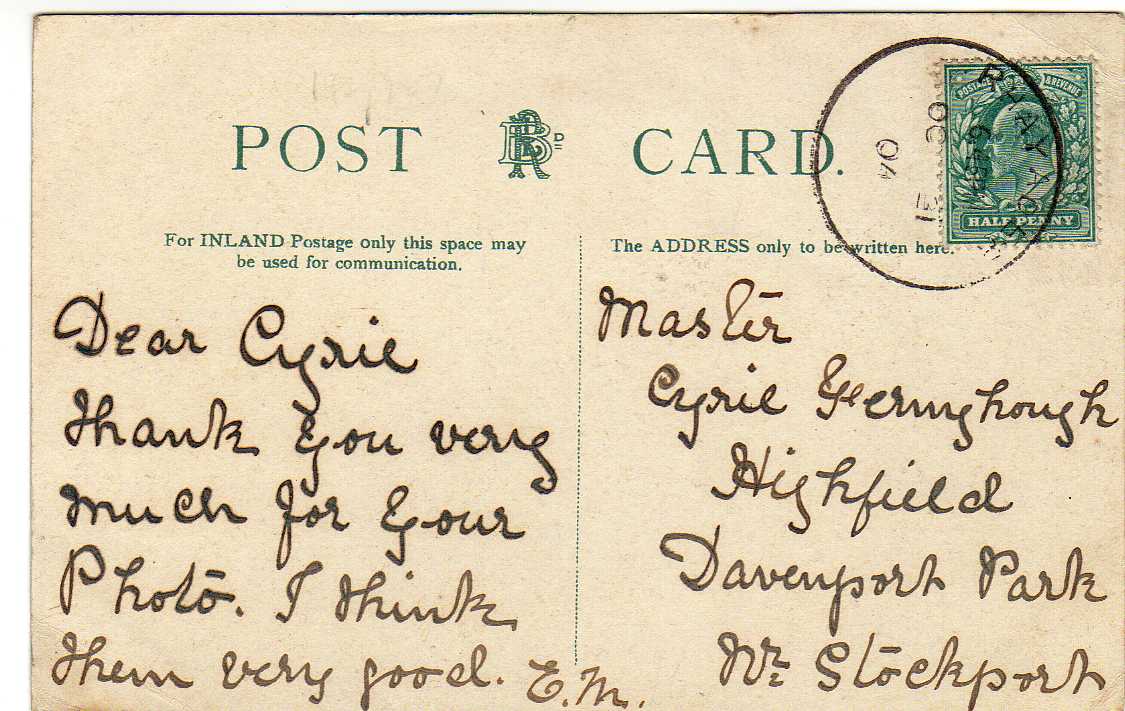 POST CARD.
For INLAND Postage only this space may
be used for communication.
The ADDRESS only to be written here.
POSTAGE & REVENUE
HALF PENNY
OC 13
04
Dear Cyril
Thank you very
much for your
Photo. I think
them very good. E.M.
Master
Cyril
Highfield
Davenport Park
Nr Stockport